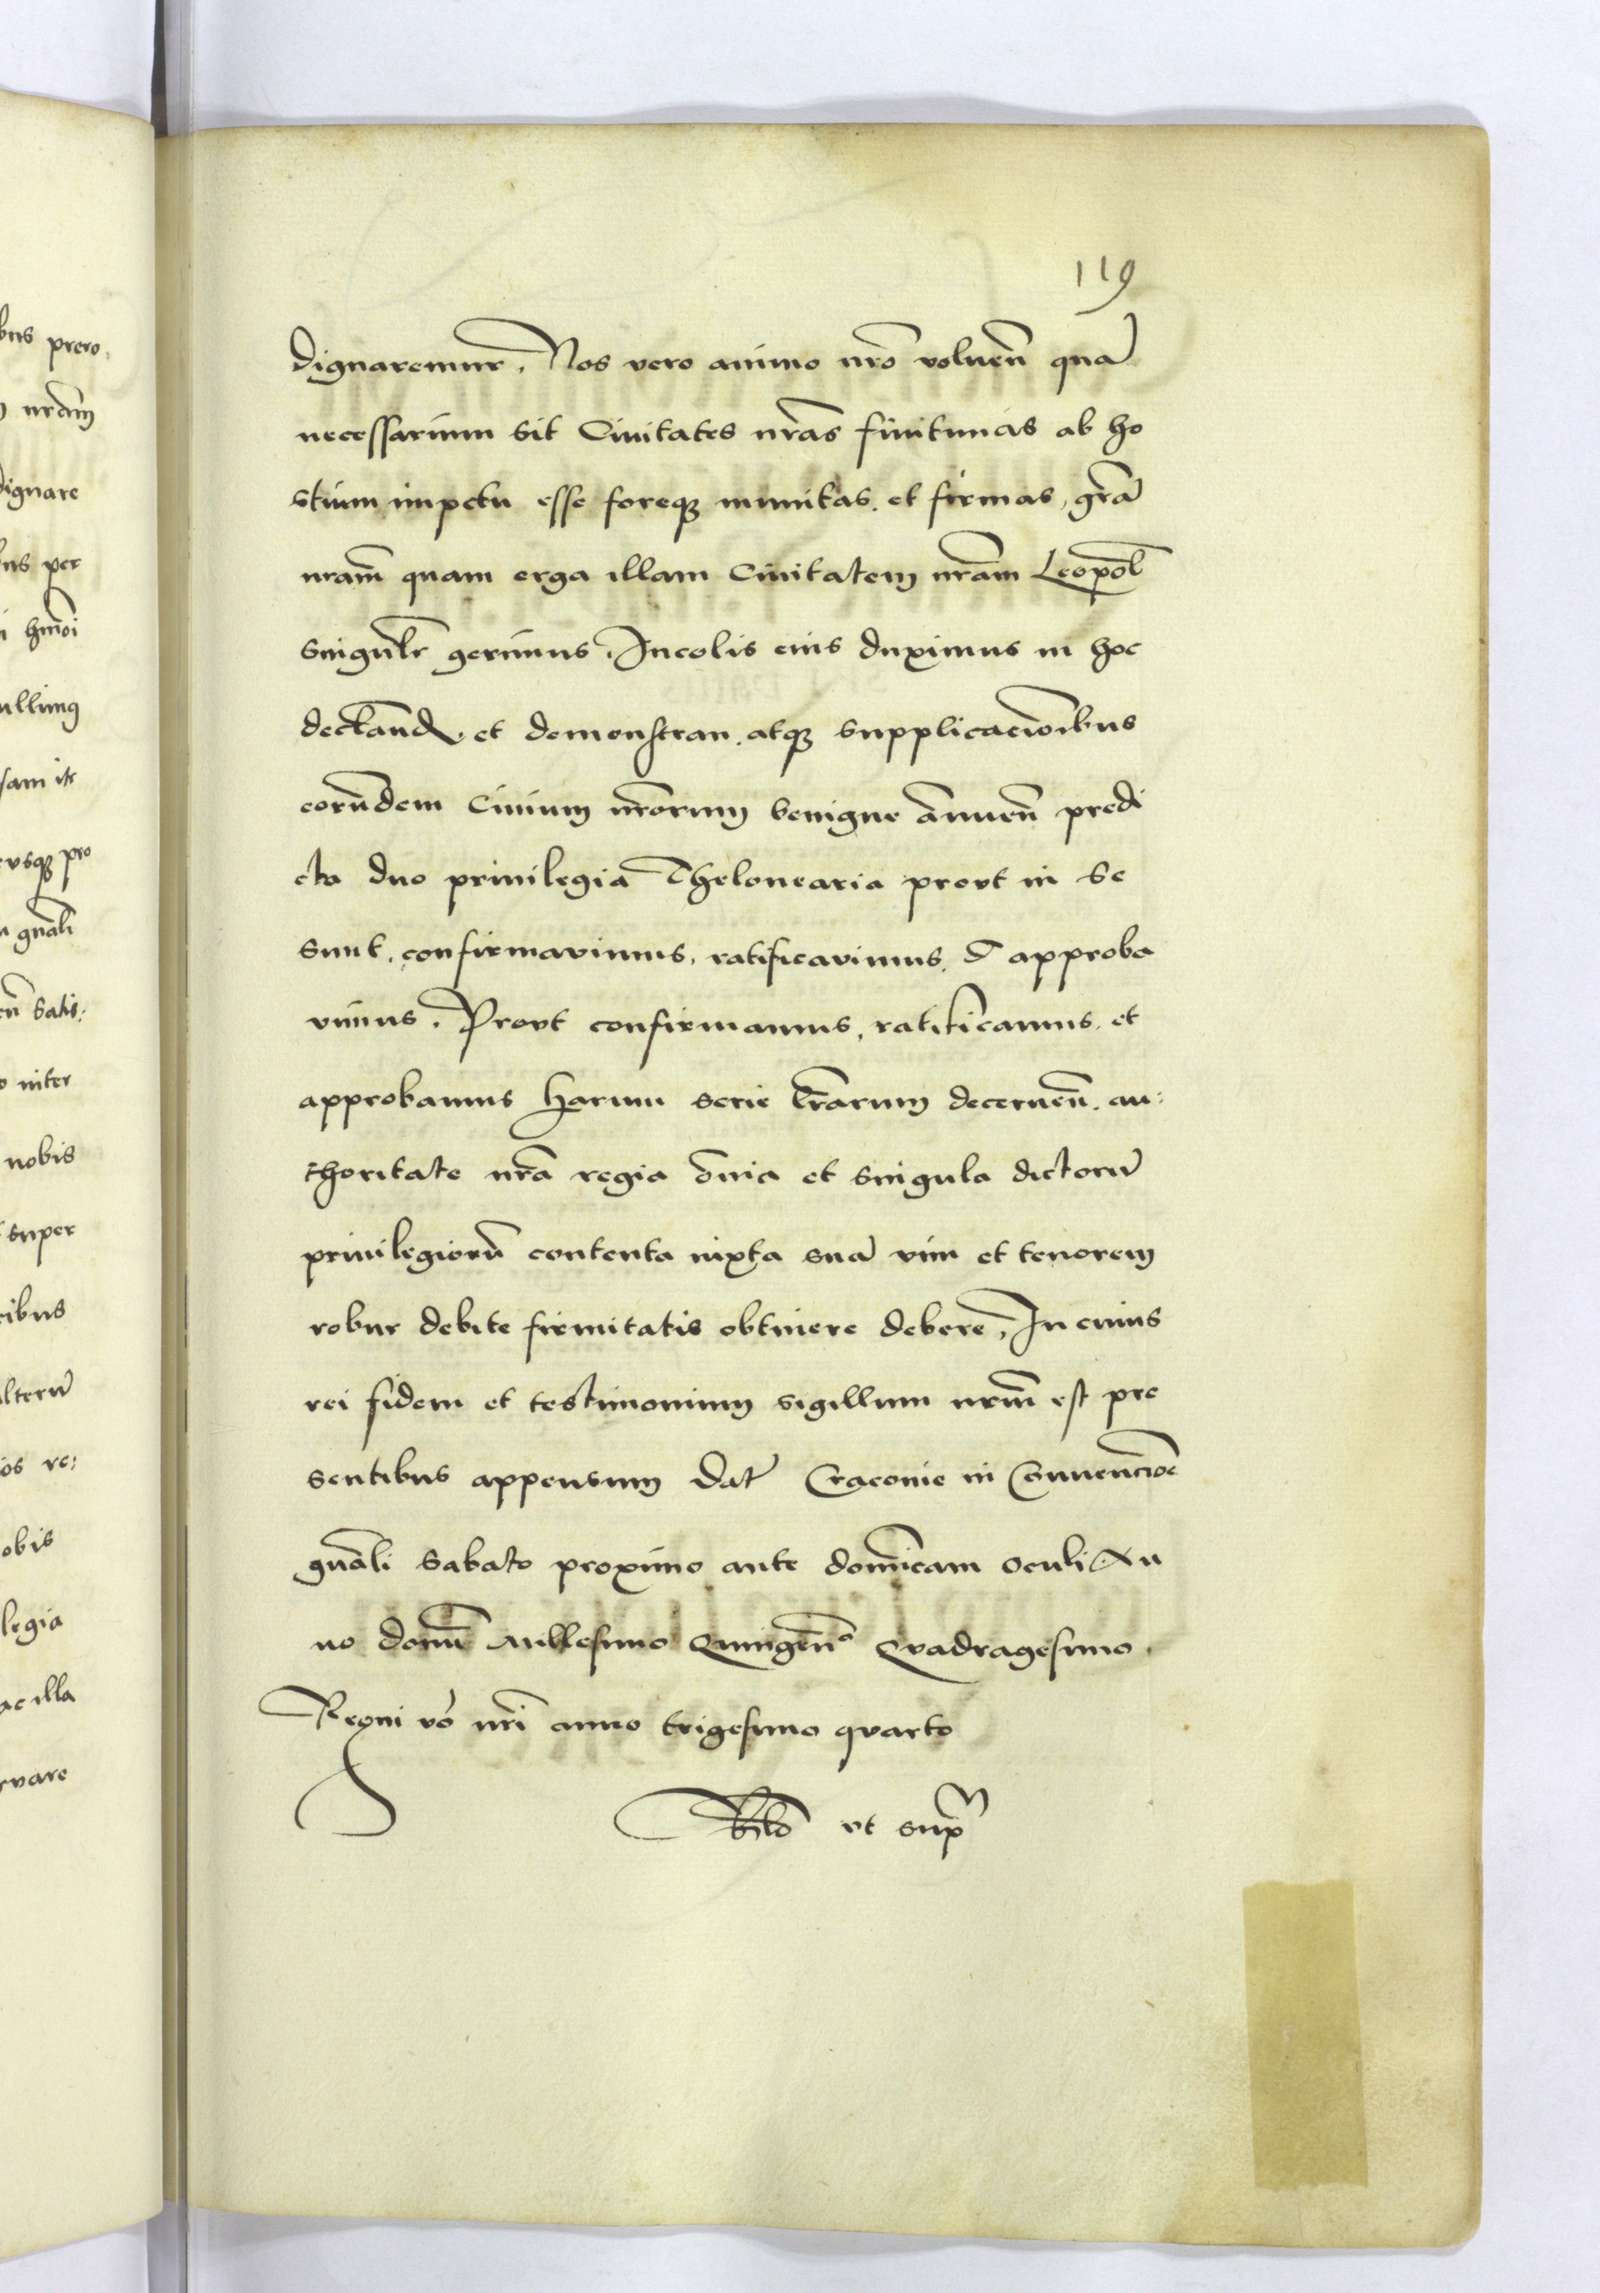 119
dignaremur. Nos vero animo nrõ voluen̄ quā
necessarium sit Ciuitates nr̃as finitimas ab ho
stium impetu esse foreqз munitas. et firmas, gr̃ã
nr̃am quam erga illam Ciuitatem nr̃am Leopol̄
singulr̄ gerimus. Incolis eius duximus in hoc
declarand et demonstran. atqз supplicacionibus
eorūdem Ciuium nr̃orum benigne ānuen̄ predi
cta duo priuilegia Thelonearia prout in se
sunt, confirmavimus, ratificavimus, & approba
vimus. Prout confirmamus, ratificamus, et
approbamus harum serie lr̃arum decernen̄. au:
thoritate nr̃a regia ōnia et singula dictorū
priuilegiorū contenta iuxta suā vim et tenorem
robur debite firmitatis obtinere debere. In cuius
rei fidem et testimonium sigillum nr̃m est pre
sentibus appensum Dat̄ Cracouie in Conuencioē
gnāli Sabato proximo ante domīcam oculi An
no domī Millesimo Quingen̄º Qvadragesimo.
Regni vō nr̃i anno trigesimo qvarto
ut sup
bus prero.
nr̃am
dignare
bus per
hmōi
ullimq
sam itr
evsqз pro
gnāli
en̄ satis:
inter
nobis
super
cibus
alterū
ios re:
obis
legia
ac illa
rvare